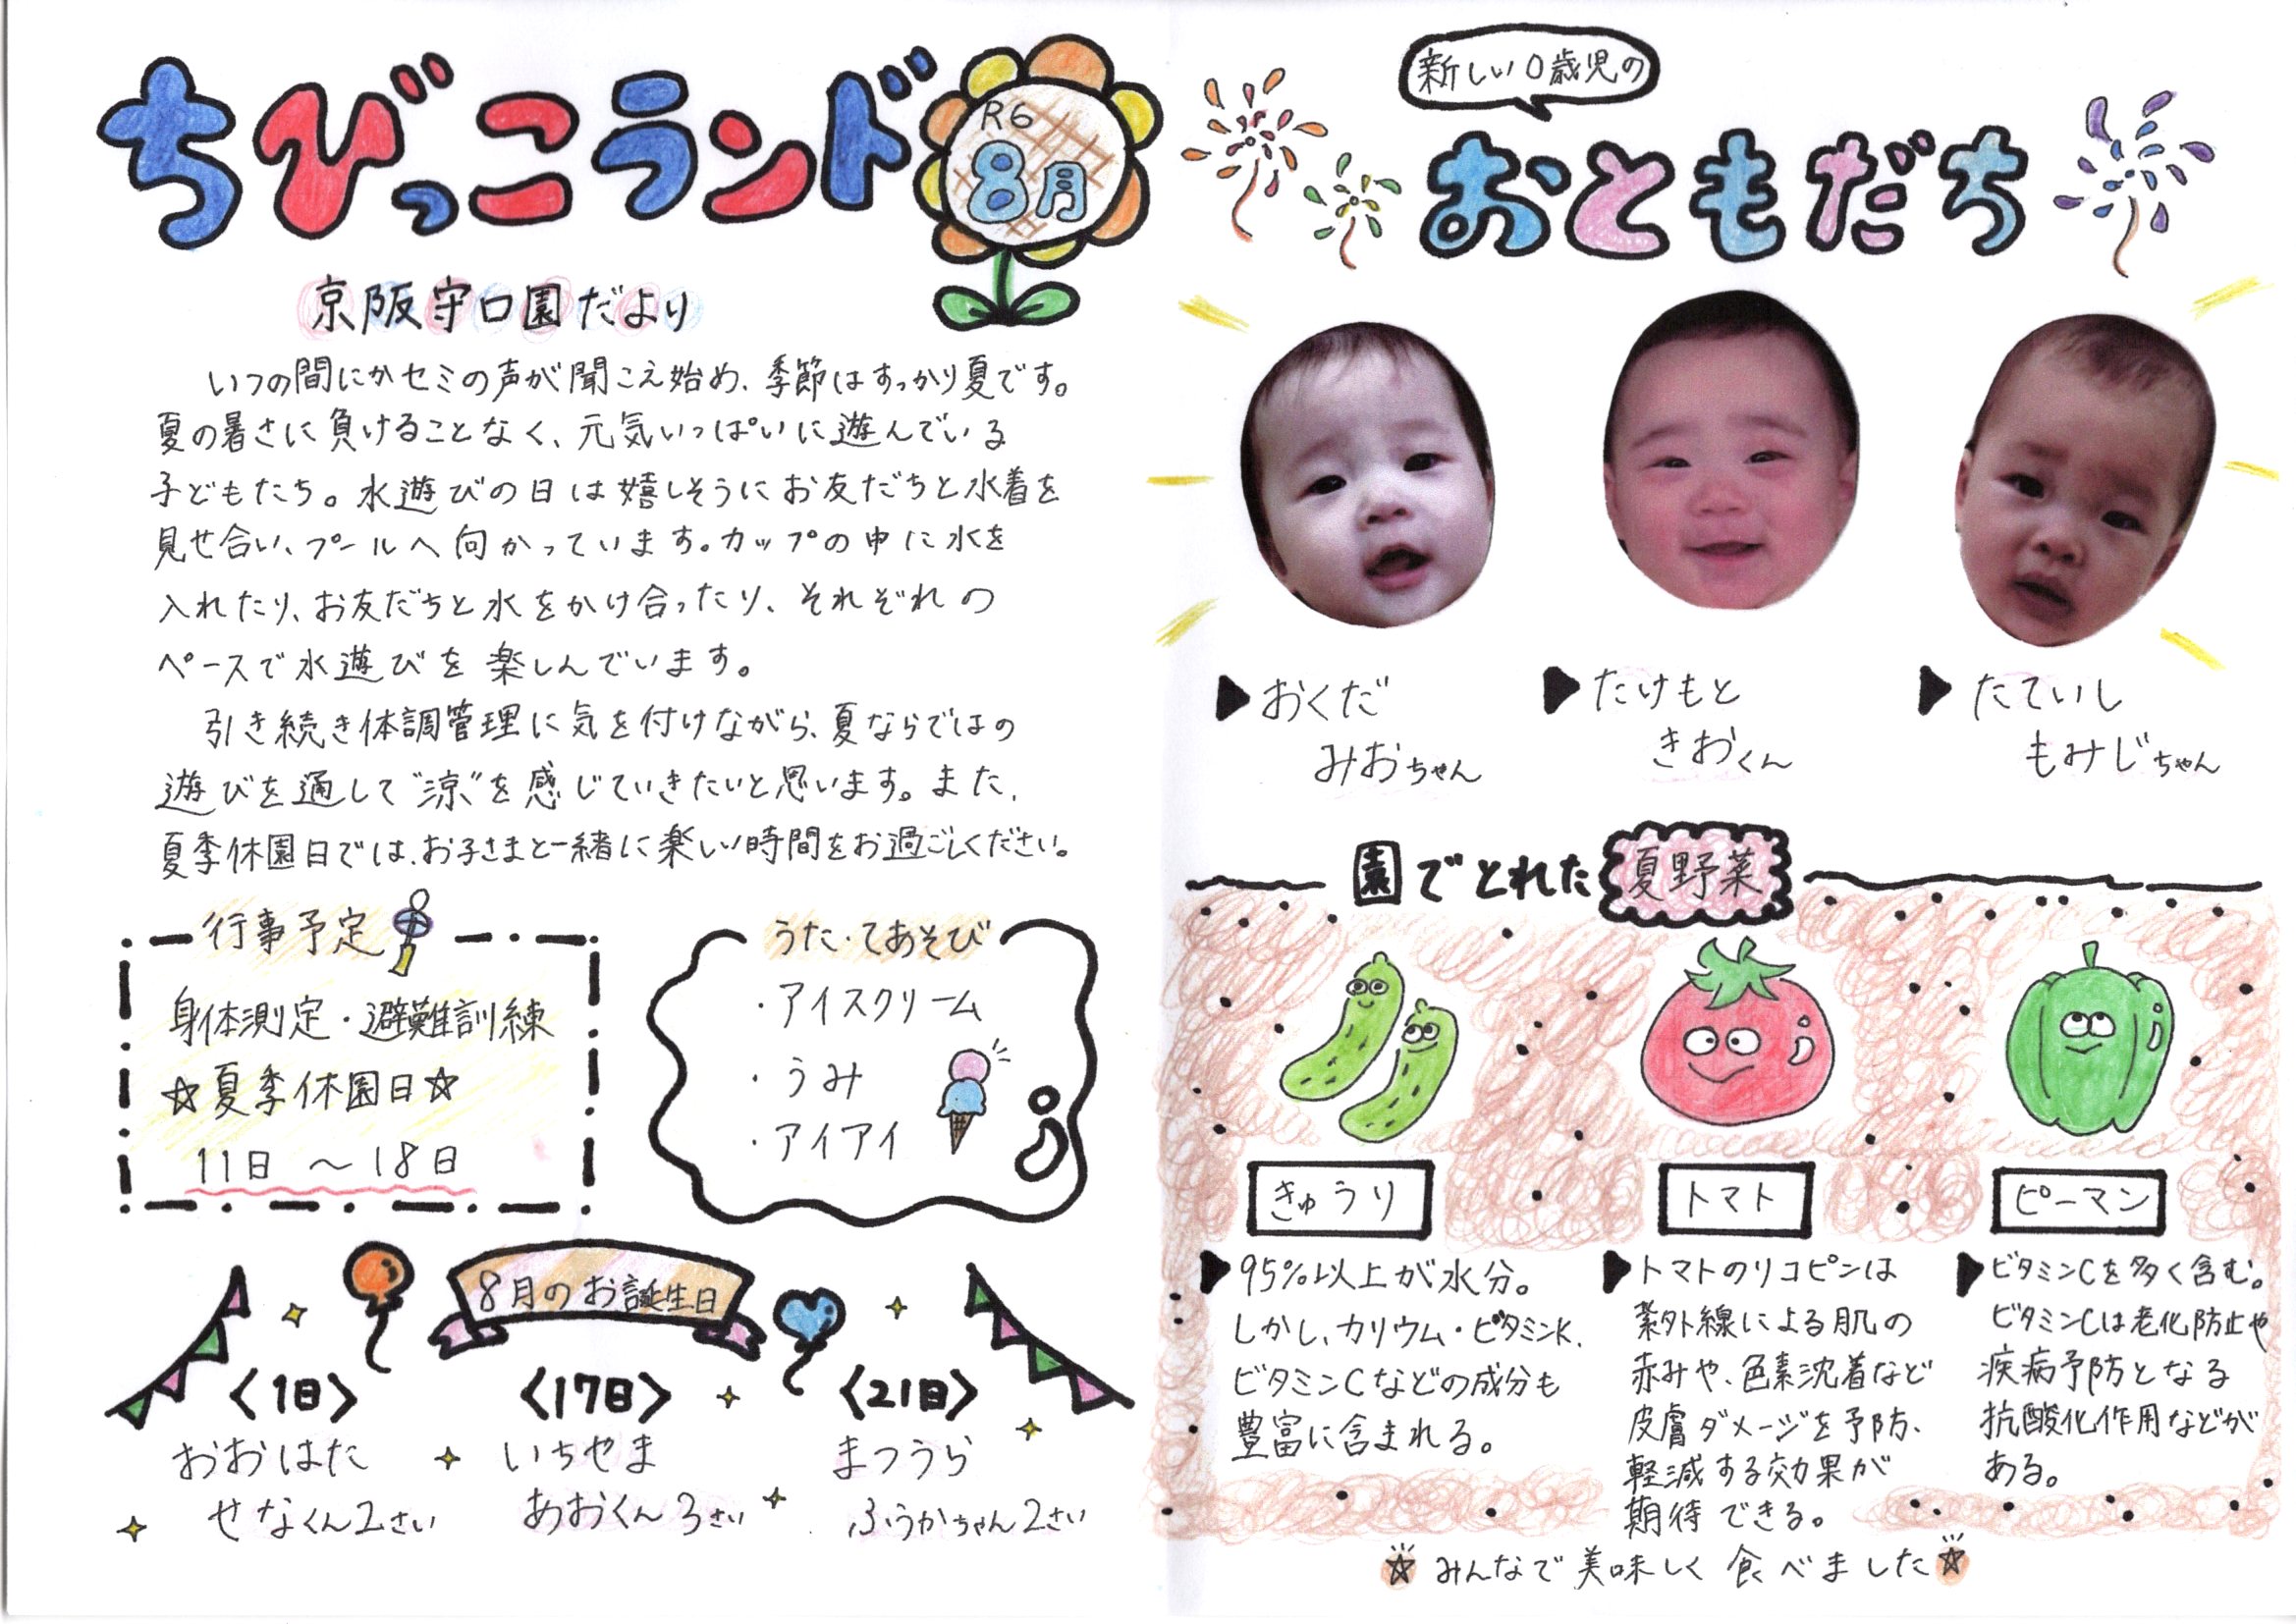 ちびっこランド
R6
8月
京阪守口園だより
いつの間にかセミの声が聞こえ始め、季節はすっかり夏です。
夏の暑さに負けることなく、元気いっぱいに遊んでいる
子どもたち。水遊びの日は嬉しそうにお友だちと水着を
見せ合い、プールへ向かっています。カップの中に水を
入れたり、お友だちと水をかけ合ったり、それぞれの
ペースで水遊びを楽しんでいます。
引き続き体調管理に気を付けながら、夏ならではの
遊びを通して“涼”を感じていきたいと思います。また、
夏季休園日では、お子さまと一緒に楽しい時間をお過ごしください。
行事予定
身体測定・避難訓練
☆夏季休園日☆
11日 〜 18日
うた・てあそび
・アイスクリーム
・うみ
・アイアイ
8月のお誕生日
〈1日〉
おおはた
せなくん2さい
〈17日〉
いちやま
あおくん3さい
〈21日〉
まつうら
ふうかちゃん2さい
新しい0歳児の
おともだち
▶おくだ
みおちゃん
▶たけもと
きおくん
▶たていし
もみじちゃん
園でとれた夏野菜
きゅうり
▶95%以上が水分。
しかし、カリウム・ビタミンK、
ビタミンCなどの成分も
豊富に含まれる。
トマト
▶トマトのリコピンは
紫外線による肌の
赤みや、色素沈着など
皮膚ダメージを予防、
軽減する効果が
期待できる。
ピーマン
▶ビタミンCを多く含む。
ビタミンCは老化防止や
疾病予防となる
抗酸化作用などが
ある。
☆みんなで美味しく食べました☆